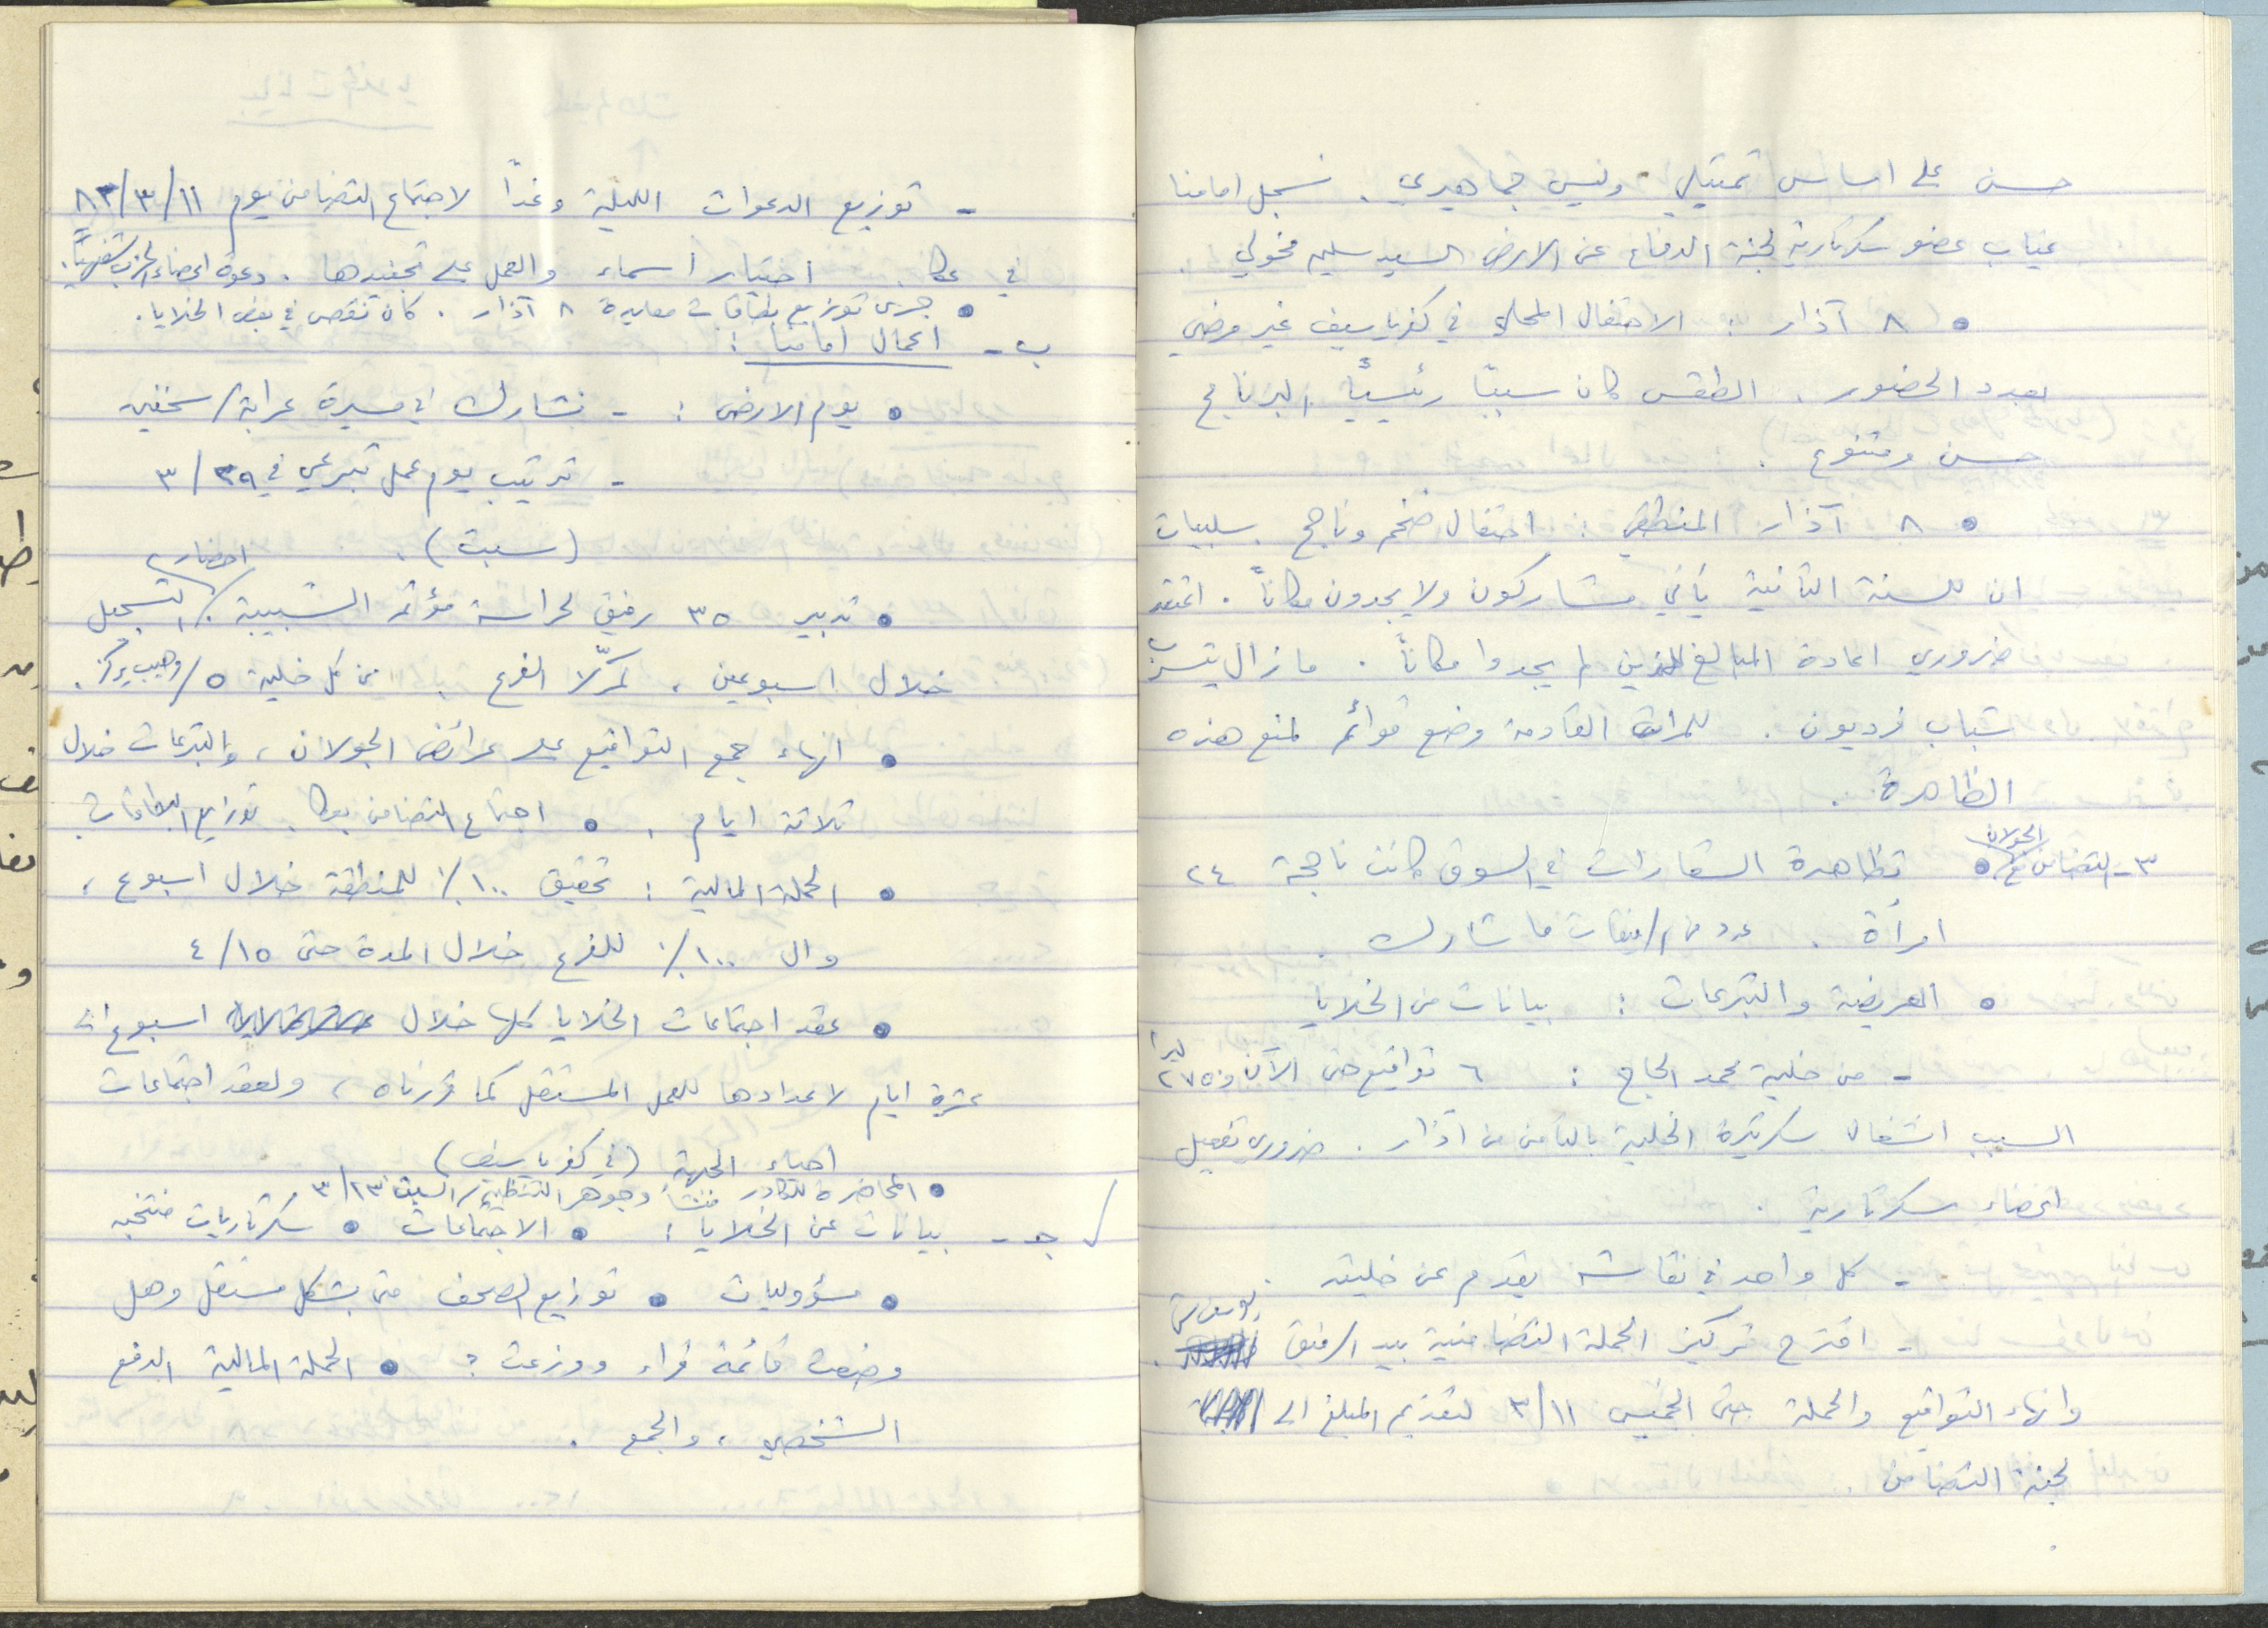 حسن على اساس تمثيلي وليس جماهيري. نسجل امامنا
غياب عضو سكرتارية لجنة الدفاع عن الارض السيد سليم مخولي.
• ٨ آذار : الاحتفال المحلي في كفرياسيف غير مرضي
بعدد الحضور. الطقس كان سببًا رئيسيًا البرنامج
حسن ومتنوع.
• ٨ آذار المنطقي : احتفال ضخم وناجح. سلبيات
ان للسنة الثانية يأتي مشاركون ولا يجدون مكانًا. اعتقد
ضروري اعادة المبالغ للذين لم يجدوا مكانًا. ما زال يتسرب
شباب فرديون. للمرات القادمة وضع قوائم لمنع هذه
الظاهرة.
٣- التضامن مع الجولان • تظاهرة الشعارات في السوق كانت ناجحة ٢٤
امرأة. عدد من الرفيقات ما شارك.
• العريضة والتبرعات : بيانات من الخلايا
- من خلية محمد الحاج : ٦ تواقيع حتى الآن و ٢٧٥٠ ليرا
السبب انشغال سكرتيرة الخلية بالثامن من آذار. ضروري تفعيل
اعضاء سكرتارية.
- كل واحد في نقاشه يقدم عن خليته.
- اقترح تركيز الحملة التضامنية بيد الرفيق
وانهاء التواقيع والحملة حتى الخميس ٣/١١ لتقديم المبلغ الى
لجنة التضامن.
- توزيع الدعوات الليلة وغدًا لاجتماع التضامن يوم ٨٢/٣/١١
في عكا. اختيار أسماء والعمل على تجنيدها. دعوة اعضاء الحزب شفهيًا.
• جرى توزيع بطاقات معايدة ٨ آذار. كان نقص في بعض الخلايا.
ب - اعمال امامنا :
• يوم الارض : - نشارك في مسيرة عرابة/سخنين
- ترتيب يوم عمل تبرعي في ٣/٢٩
(سبت).
• تدبير ٣٥ رفيق لحراسة مؤتمر الشبيبة. احضار التسجيل
خلال اسبوعين، الفرع من كل خلية ٥/وهيب يركز.
• انهاء جمع التواقيع على عرائض الجولان، والتبرعات خلال
ثلاثة ايام. • اجتماع التضامن بعكا. توزيع البطاقات
• الحملة المالية : تحقيق ١٠٠٪ للمنطقة خلال اسبوع،
وال ١٠٠٪ للفرع خلال المدة حتى ٤/١٥
• عقد اجتماعات الخلايا كلها خلال اسبوع الى
عشرة ايام لاعدادها للعمل المستقل كما قررناه، ولعقد اجتماعات
احياء الجبهة (في كفرياسيف)
• المحاضرة للكادر منشأ وجوهر التنظيم/السبت ٣/١٣
جـ - بيانات عن الخلايا : • الاجتماعات • سكرتاريات منتخبه
• مسؤوليات • توزيع الصحف متى بشكل مستقل وهل
وضعت قائمة قراء ووزعت ؟ • الحملة المالية الدفع
الشخصي، والجمع.